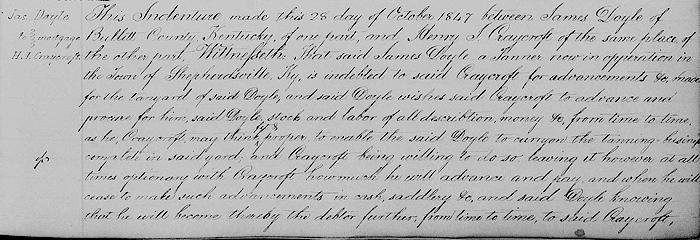 Jas. Doyle
to } mortgage
H. I. Craycroft
This Indenture made this 28 day of October 1847 between James Doyle of
Bullitt County, Kentucky, of one part, and Henry I Craycroft of the same place of
the other part, Witnesseth: That said James Doyle a Tanner now in opperation in
the Town of Shepherdsville, Ky, is indebted to said Craycroft for advancements &c, made
for the tanyard of said Doyle, and said Doyle wishes said Craycroft to advance and
procure for him, said Doyle, stock and labor of all describtion, money &c, from time to time,
as he, Craycroft, may think proper, to enable the said Doyle to carryon the tanning business
complete in said yard; and Craycroft being willing to do so: leaving it however at all
times optionary with Craycroft how much he will advance and pay, and when he will
cease to make such advancements in cash, saddlery &c, and said Doyle knowing
that he will become thereby the debtor further, from time to time, to said Craycroft,